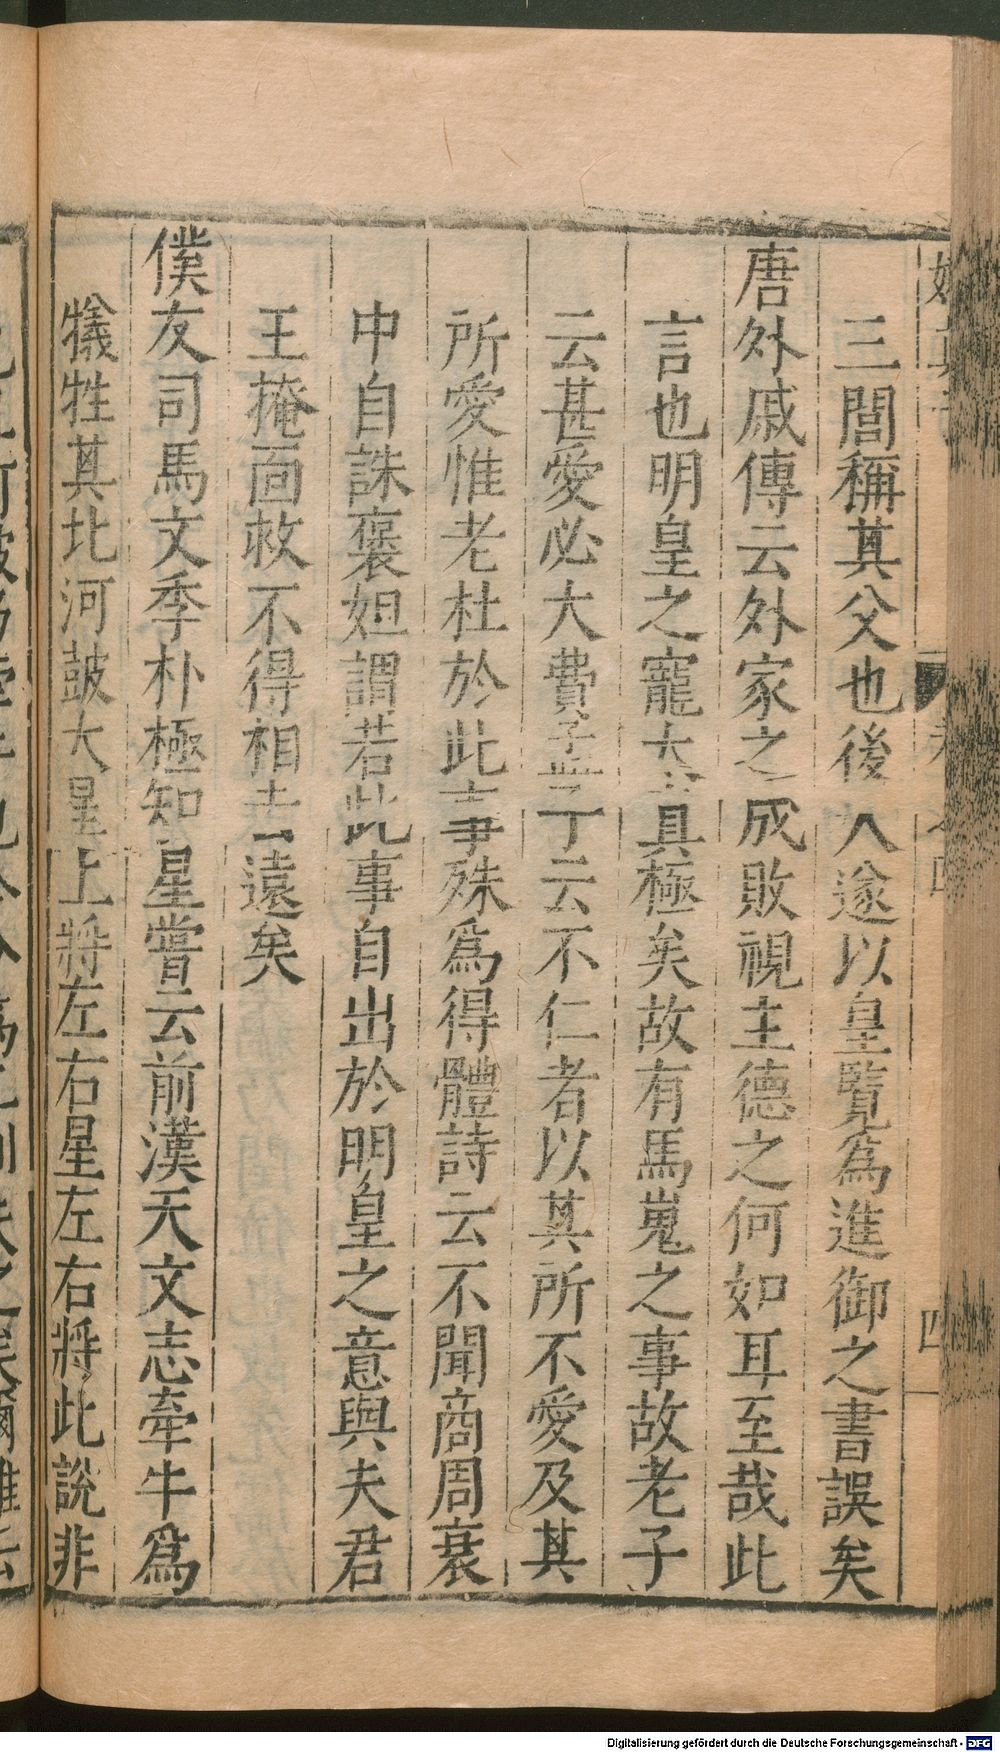 三閭稱其父也後人遂以皇覽爲進御之書誤矣
唐外戚傳云外家之成敗視主德之何如耳至哉此
言也明皇之寵太真極矣故有馬嵬之事故老子
云甚愛必大費孟子云不仁者以其所不愛及其
所愛惟老杜於此事殊爲得體詩云不聞商周衰
中自誅褒妲謂若此事自出於明皇之意與夫君
王掩面救不得相去遠矣
僕友司馬文季朴極知星嘗云前漢天文志牽牛爲
犧牲其北河鼓大星上將左右星左右將此說非
四
Digitalisierung gefördert durch die Deutsche Forschungsgemeinschaft - DFG